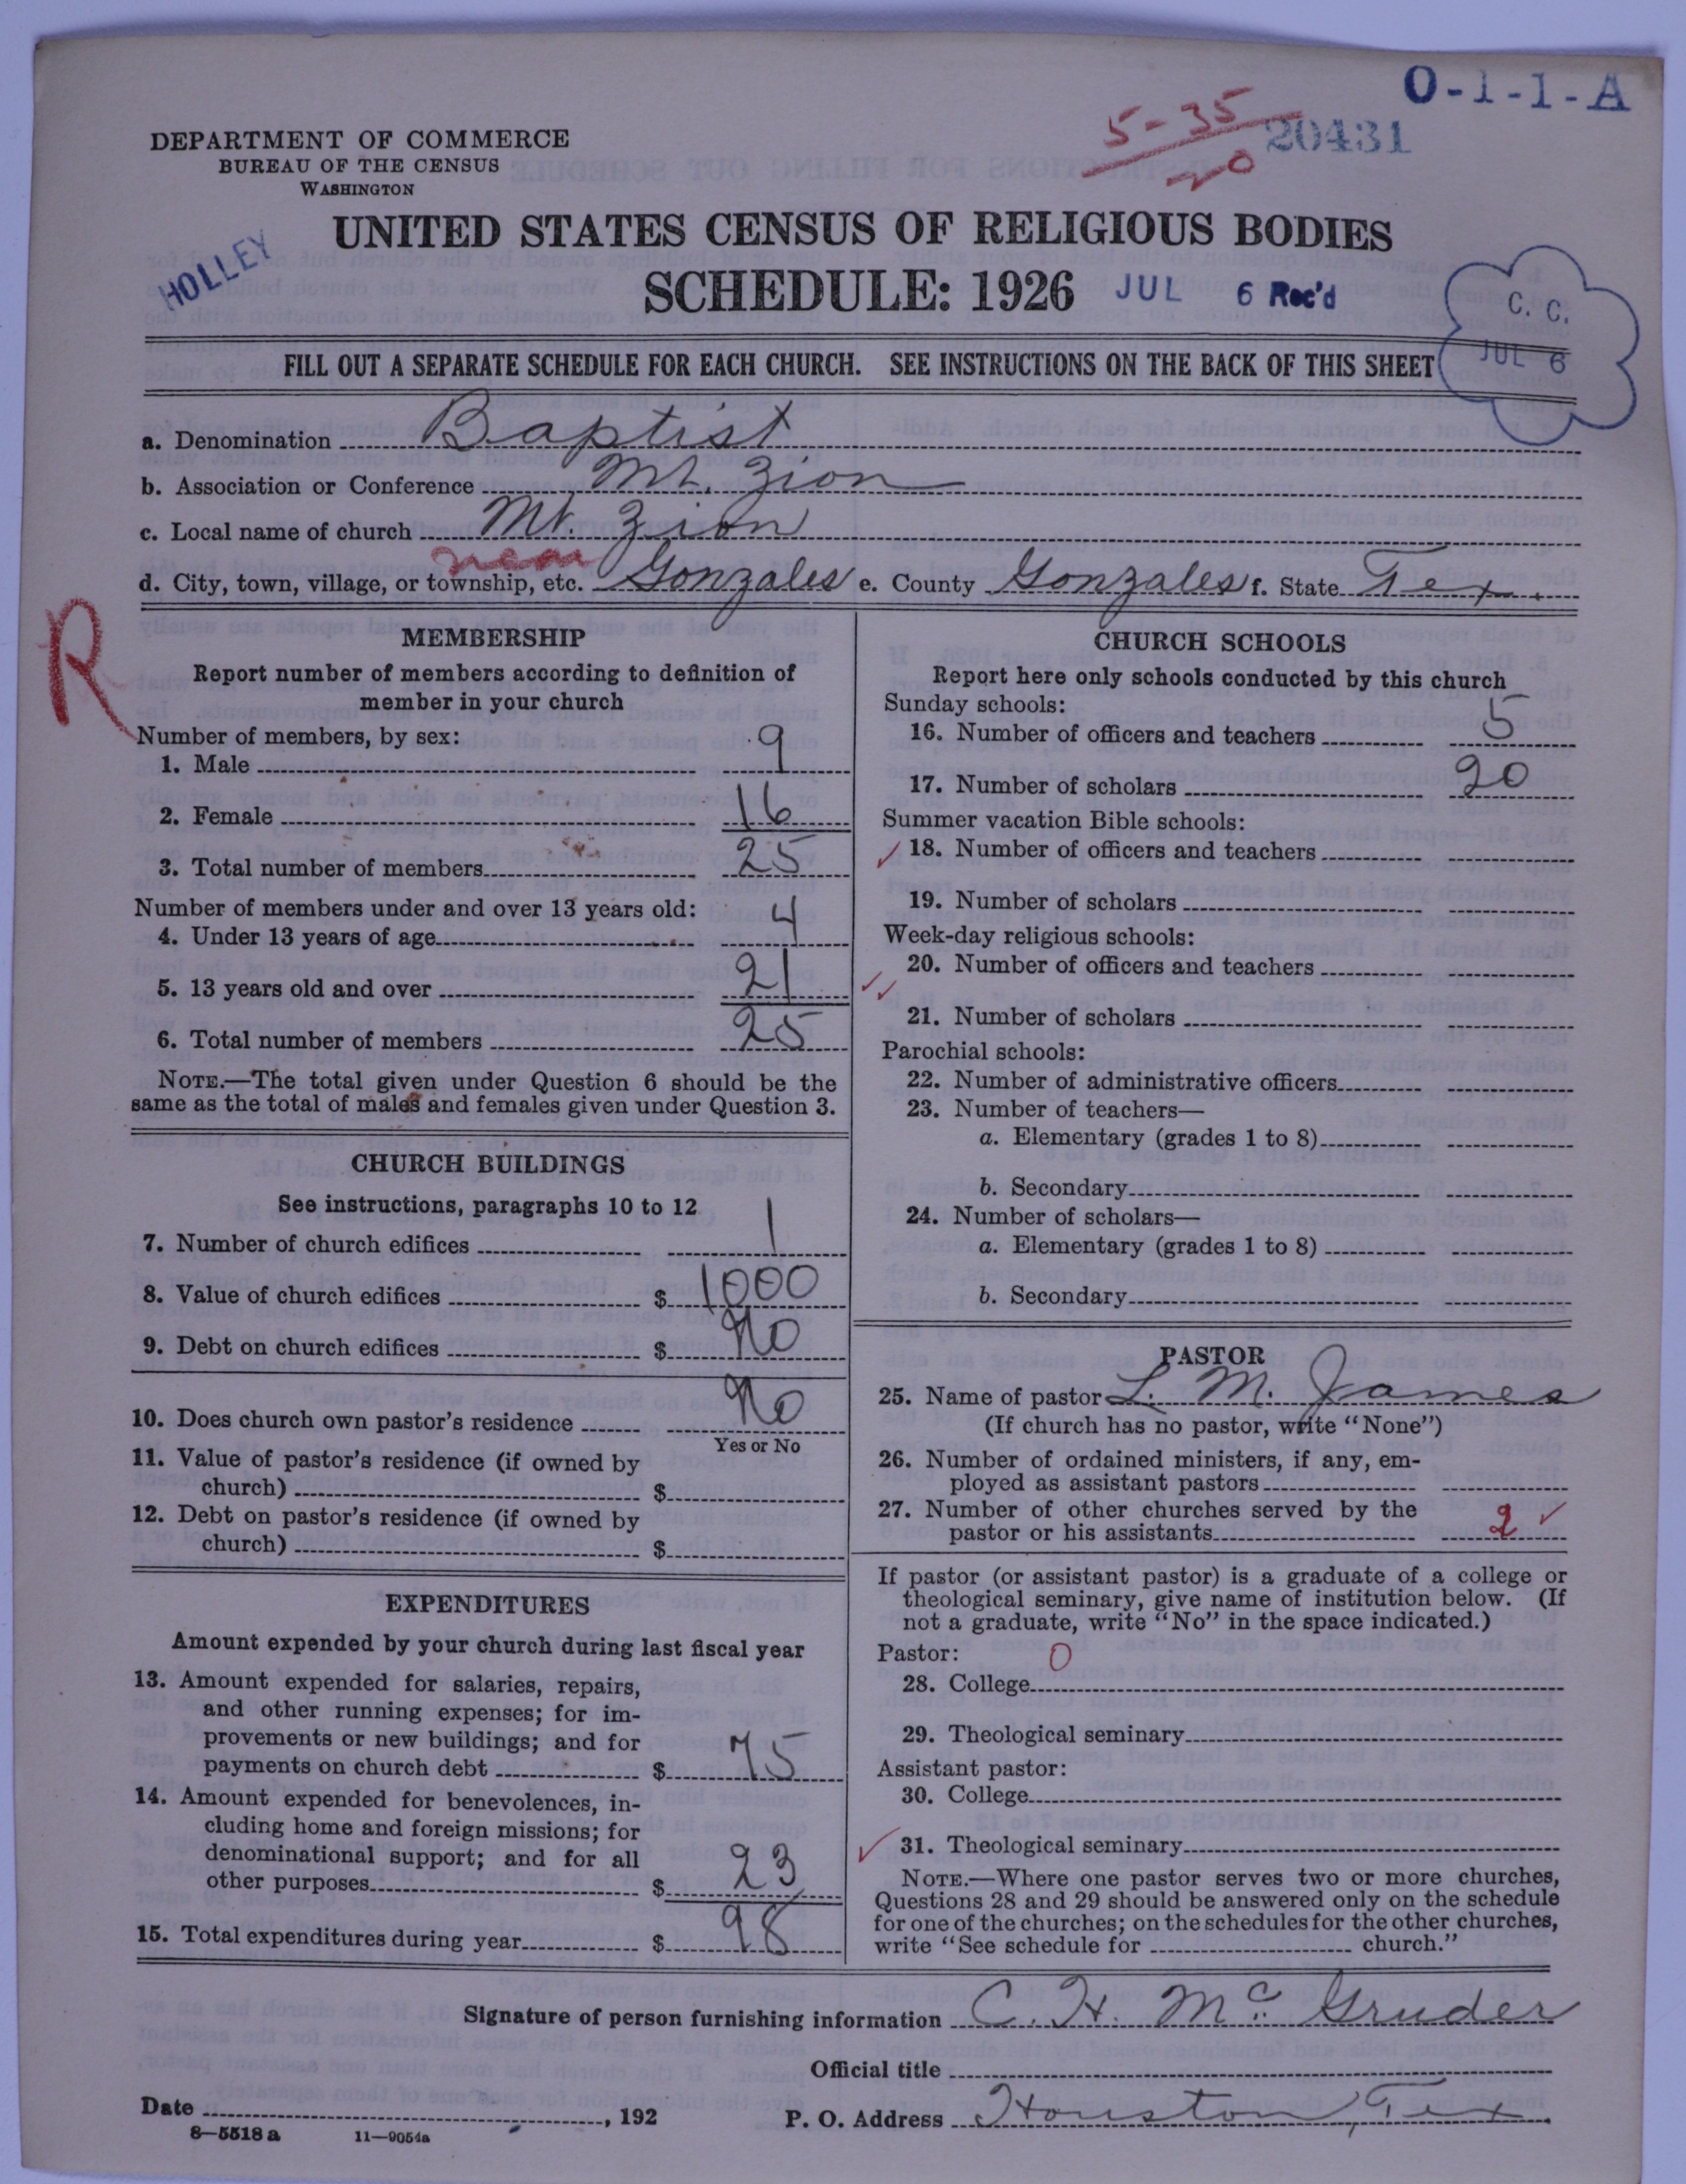 O-1-1-A
5-35
20431
DEPARTMENT OF COMMERCE
BUREAU OF THE CENSUS
WASHINGTON
UNITED STATES CENSUS OF RELIGIOUS BODIES
HOLLEY
SCHEDULE: 1926 JUL 6 Rec'd
C. C.
JUL 6
FILL OUT A SEPARATE SCHEDULE FOR EACH CHURCH. SEE INSTRUCTIONS ON THE BACK OF THIS SHEET
a. Denomination Baptist
b. Association or Conference Mt. Zion
c. Local name of church Mt. Zion
near
d. City, town, village, or township, etc. Gonzales e. County Gonzales f. State Tex.
R
MEMBERSHIP
Report number of members according to definition of
member in your church
Number of members, by sex:
1. Male 9
2. Female 16
3. Total number of members 25
Number of members under and over 13 years old:
4. Under 13 years of age 4
5. 13 years old and over 21
6. Total number of members 25
NOTE.—The total given under Question 6 should be the
same as the total of males and females given under Question 3.
CHURCH BUILDINGS
See instructions, paragraphs 10 to 12
7. Number of church edifices 1
8. Value of church edifices $ 1000
9. Debt on church edifices $ No
10. Does church own pastor's residence No
Yes or No
11. Value of pastor's residence (if owned by
church) $
12. Debt on pastor's residence (if owned by
church) $
EXPENDITURES
Amount expended by your church during last fiscal year
13. Amount expended for salaries, repairs,
and other running expenses; for im-
provements or new buildings; and for
payments on church debt $ 75
14. Amount expended for benevolences, in-
cluding home and foreign missions; for
denominational support; and for all
other purposes $ 23
15. Total expenditures during year $ 98
CHURCH SCHOOLS
Report here only schools conducted by this church
Sunday schools:
16. Number of officers and teachers 5
17. Number of scholars 20
Summer vacation Bible schools:
18. Number of officers and teachers
19. Number of scholars
Week-day religious schools:
20. Number of officers and teachers
21. Number of scholars
Parochial schools:
22. Number of administrative officers
23. Number of teachers—
a. Elementary (grades 1 to 8)
b. Secondary
24. Number of scholars—
a. Elementary (grades 1 to 8)
b. Secondary
PASTOR
25. Name of pastor L. M. James
(If church has no pastor, write "None")
26. Number of ordained ministers, if any, em-
ployed as assistant pastors
27. Number of other churches served by the
pastor or his assistants 2 ✓
If pastor (or assistant pastor) is a graduate of a college or
theological seminary, give name of institution below. (If
not a graduate, write "No" in the space indicated.)
Pastor: 0
28. College
29. Theological seminary
Assistant pastor:
30. College
31. Theological seminary
NOTE.—Where one pastor serves two or more churches,
Questions 28 and 29 should be answered only on the schedule
for one of the churches; on the schedules for the other churches,
write "See schedule for church."
Signature of person furnishing information C. H. McGruder
Official title
Date , 192 P. O. Address Houston, Tex.
8—5518 a 11—9054a